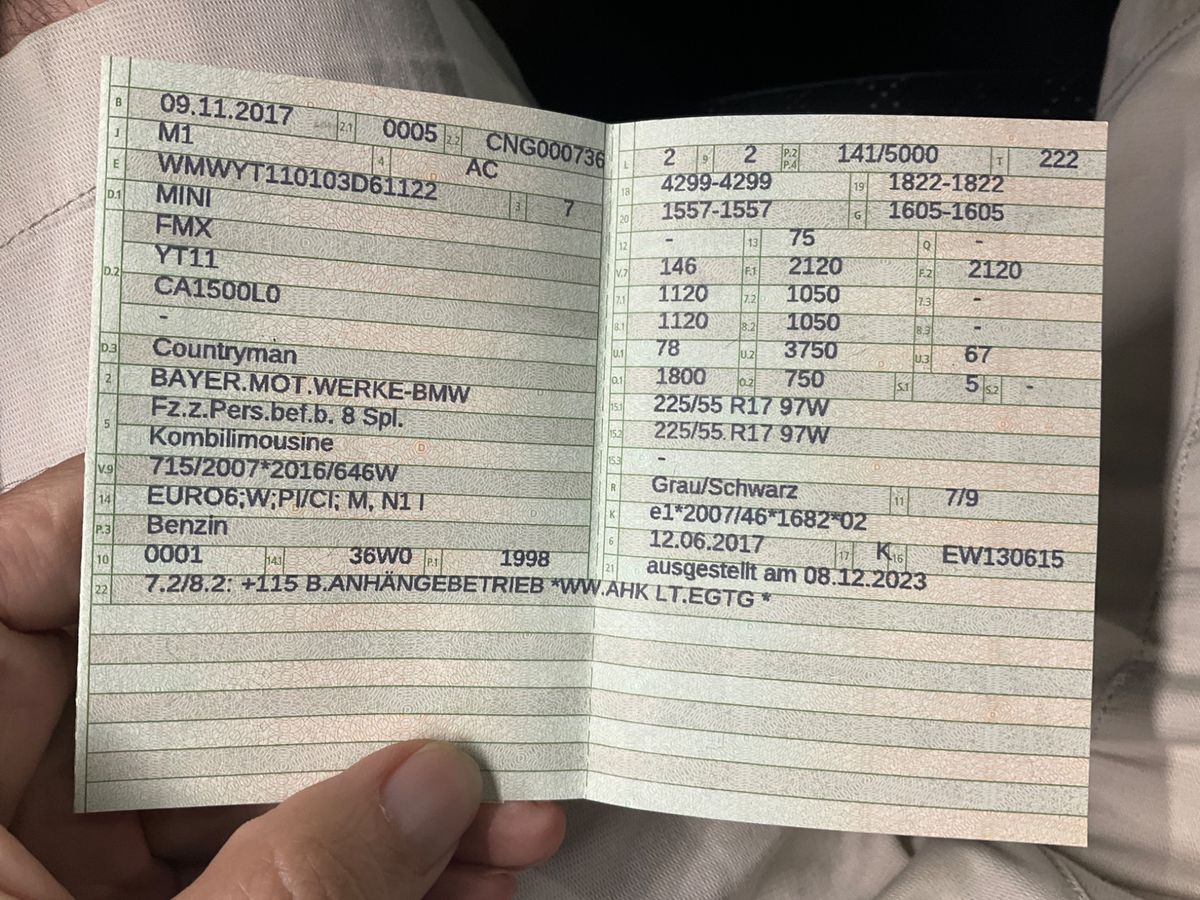 B 09.11.2017 2.1 0005 2.2 CNG000736
J M1 4 AC
E WMWYT110103D61122 3 7
D.1 MINI
D.2 FMX
YT11
CA1500L0
-
D.3 Countryman
2 BAYER.MOT.WERKE-BMW
5 Fz.z.Pers.bef.b. 8 Spl.
Kombilimousine
V.9 715/2007*2016/646W
14 EURO6;W;PI/CI; M, N1 I
P.3 Benzin
10 0001 14.1 36W0 P.1 1998
22 7.2/8.2: +115 B.ANHÄNGEBETRIEB *WW.AHK LT.EGTG *
L 2 9 2 P.2 P.4 141/5000 T 222
18 4299-4299 19 1822-1822
20 1557-1557 G 1605-1605
12 - 13 75 Q -
V.7 146 F.1 2120 F.2 2120
7.1 1120 7.2 1050 7.3 -
8.1 1120 8.2 1050 8.3 -
U.1 78 U.2 3750 U.3 67
O.1 1800 O.2 750 S.1 5 S.2 -
15.1 225/55 R17 97W
15.2 225/55 R17 97W
15.3 -
R Grau/Schwarz 11 7/9
K e1*2007/46*1682*02
6 12.06.2017 17 K 16 EW130615
21 ausgestellt am 08.12.2023